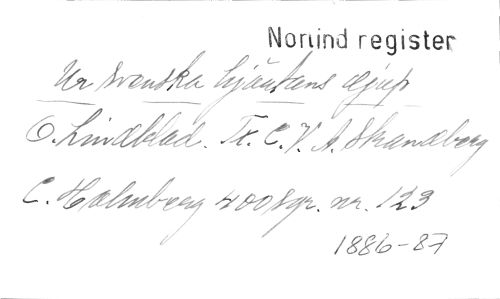 Norlind register
Ur svenska hjärtans djup
O. Lindblad. Tx. C. V. A. Strandberg
C. Holmberg 400 Sgr. nr. 123
1886-87